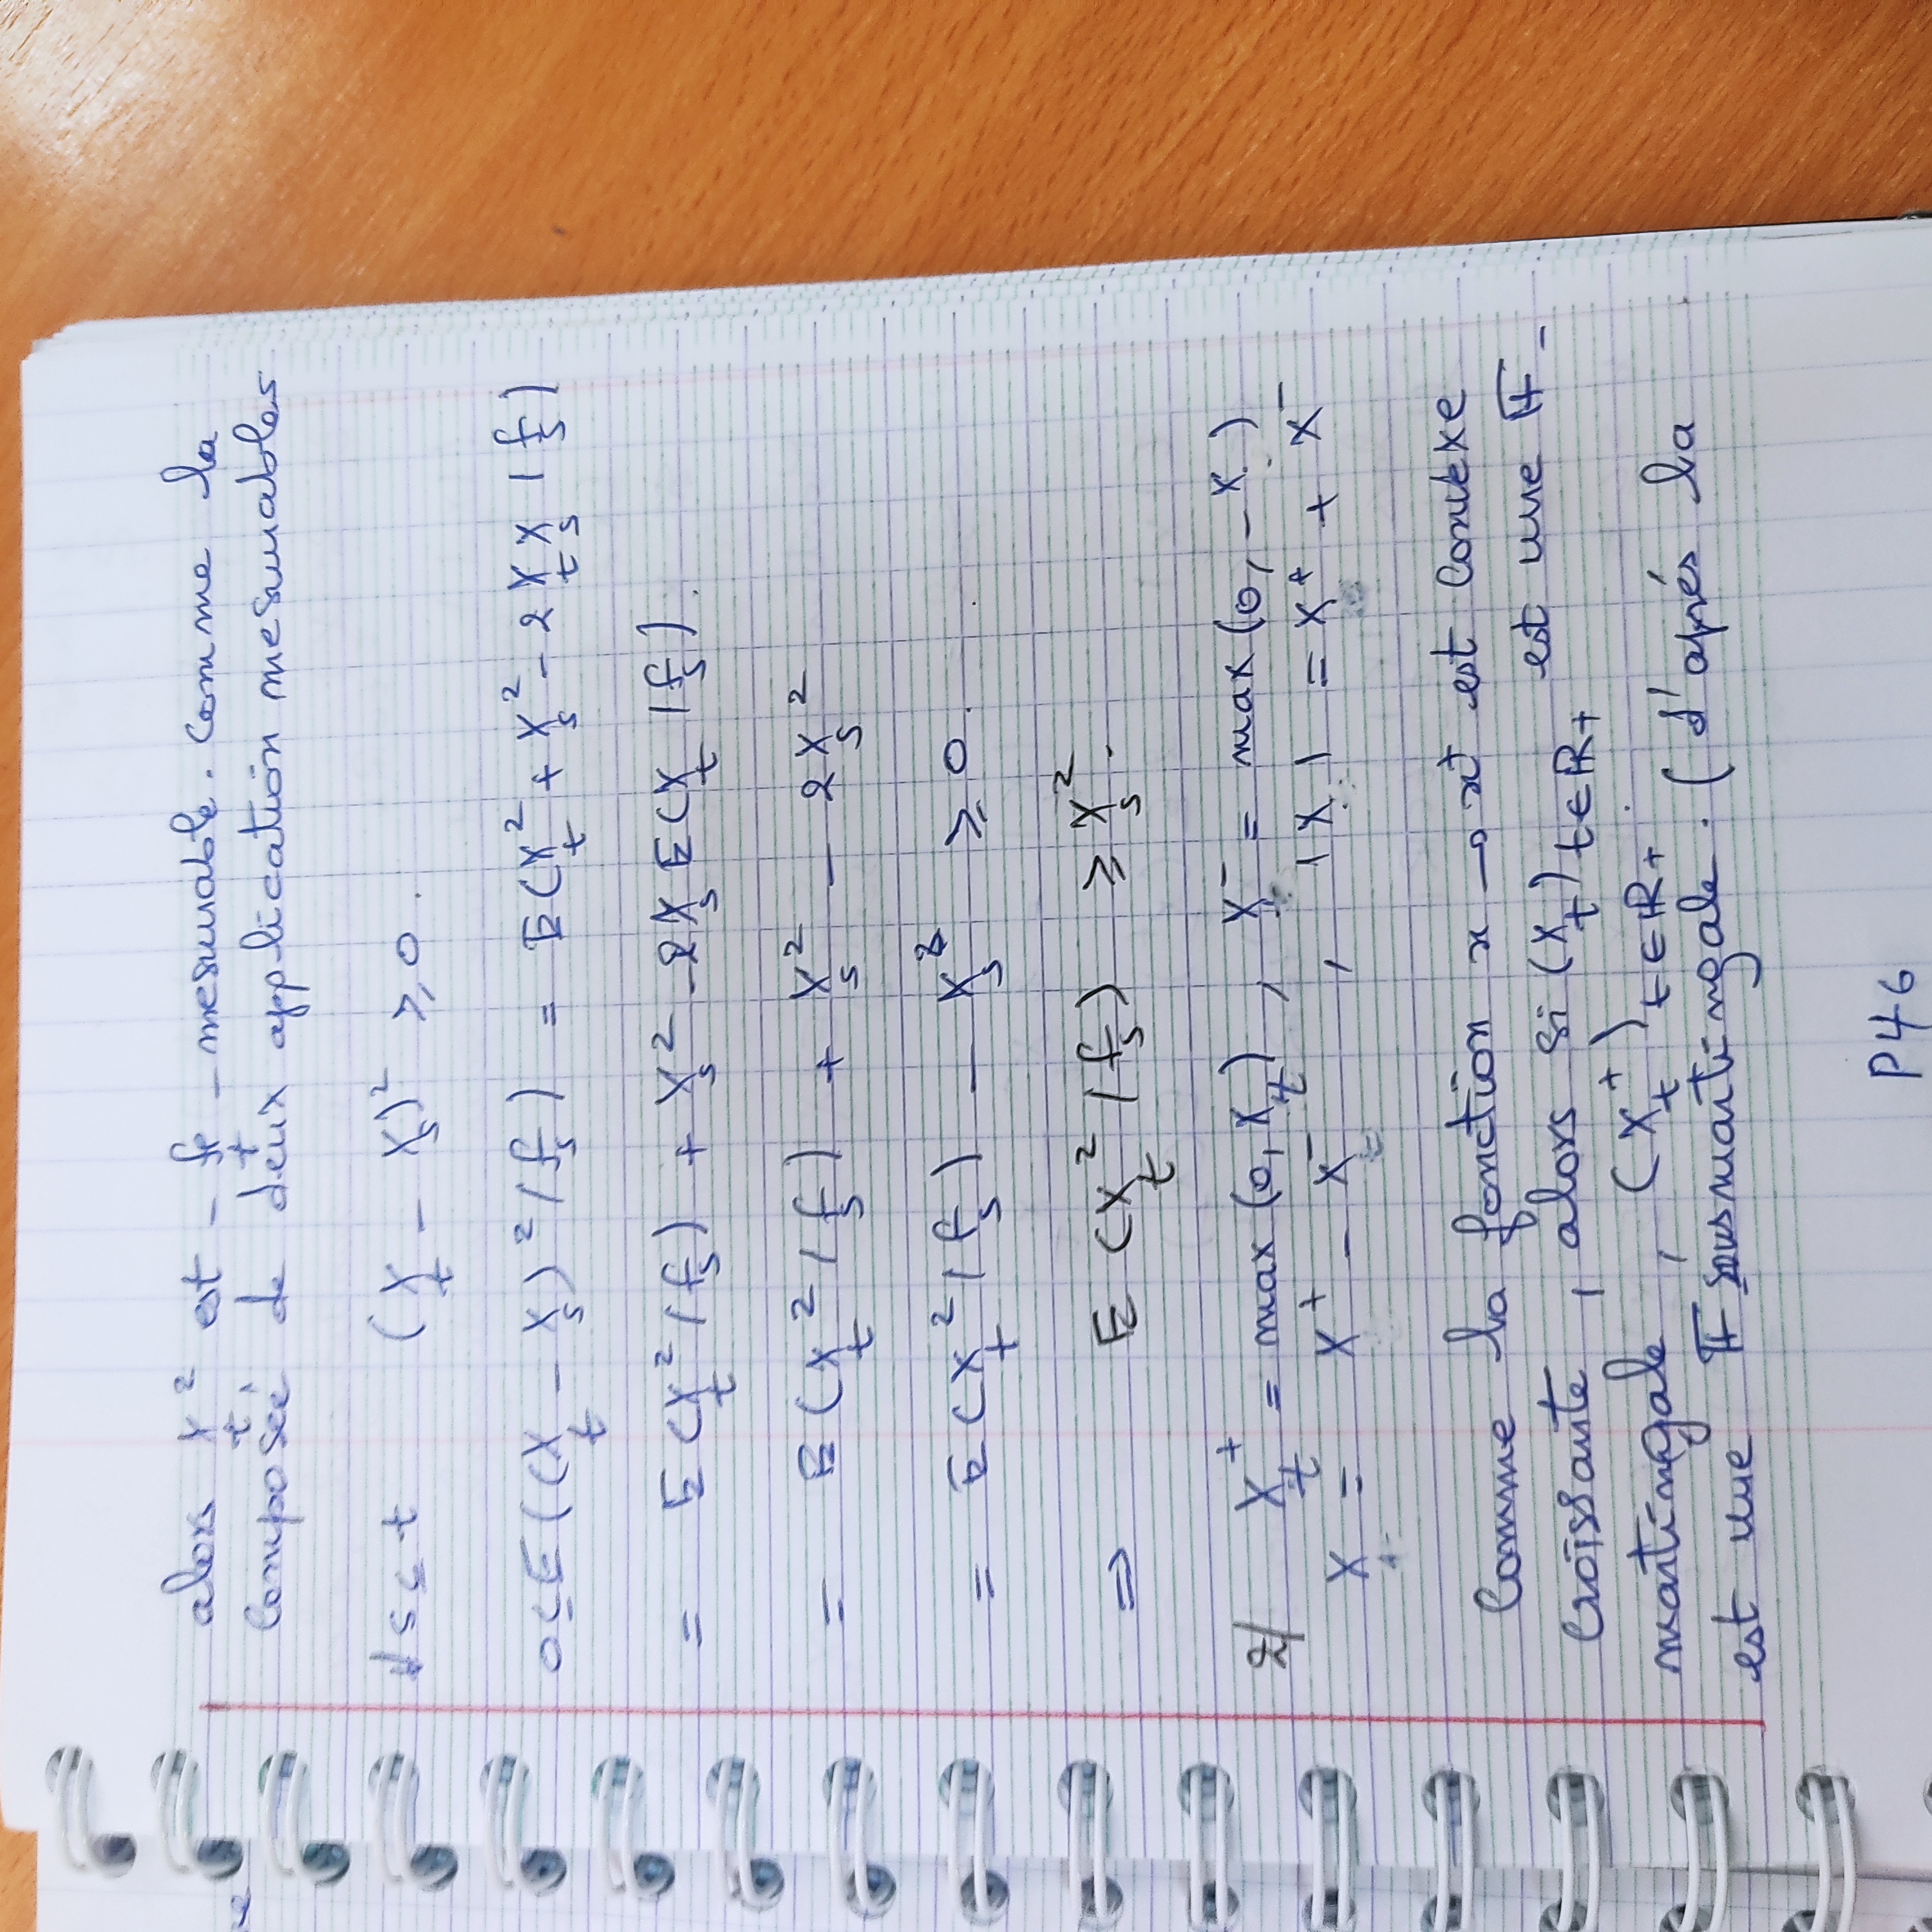 alors X_t² est - f_t - mesurable. Comme la
Composée de deux application mesurables
∀ s ≤ t (X_t - X_s)² ≥ 0.
0 ≤ E((X_t - X_s)² / f_s) = E(X_t² + X_s² - 2 X_t X_s / f_s)
= E(X_t² / f_s) + X_s² - 2 X_s E(X_t / f_s).
= E(X_t² / f_s) + X_s² - 2 X_s²
= E(X_t² / f_s) - X_s² ≥ 0.
⇒ E(X_t² / f_s) ≥ X_s².
2/ X_t⁺ = max(0, X_t), X⁻ = max(0, -X)
X = X⁺ - X⁻, |X| = X⁺ + X⁻
Comme la fonction x → x⁺ est convexe
croissante, alors si (X_t)_{t∈ℝ+} est une 𝔽-
martingale, (X_t⁺)_{t∈ℝ+}
est une 𝔽 sousmartingale. (d'aprés la
P46